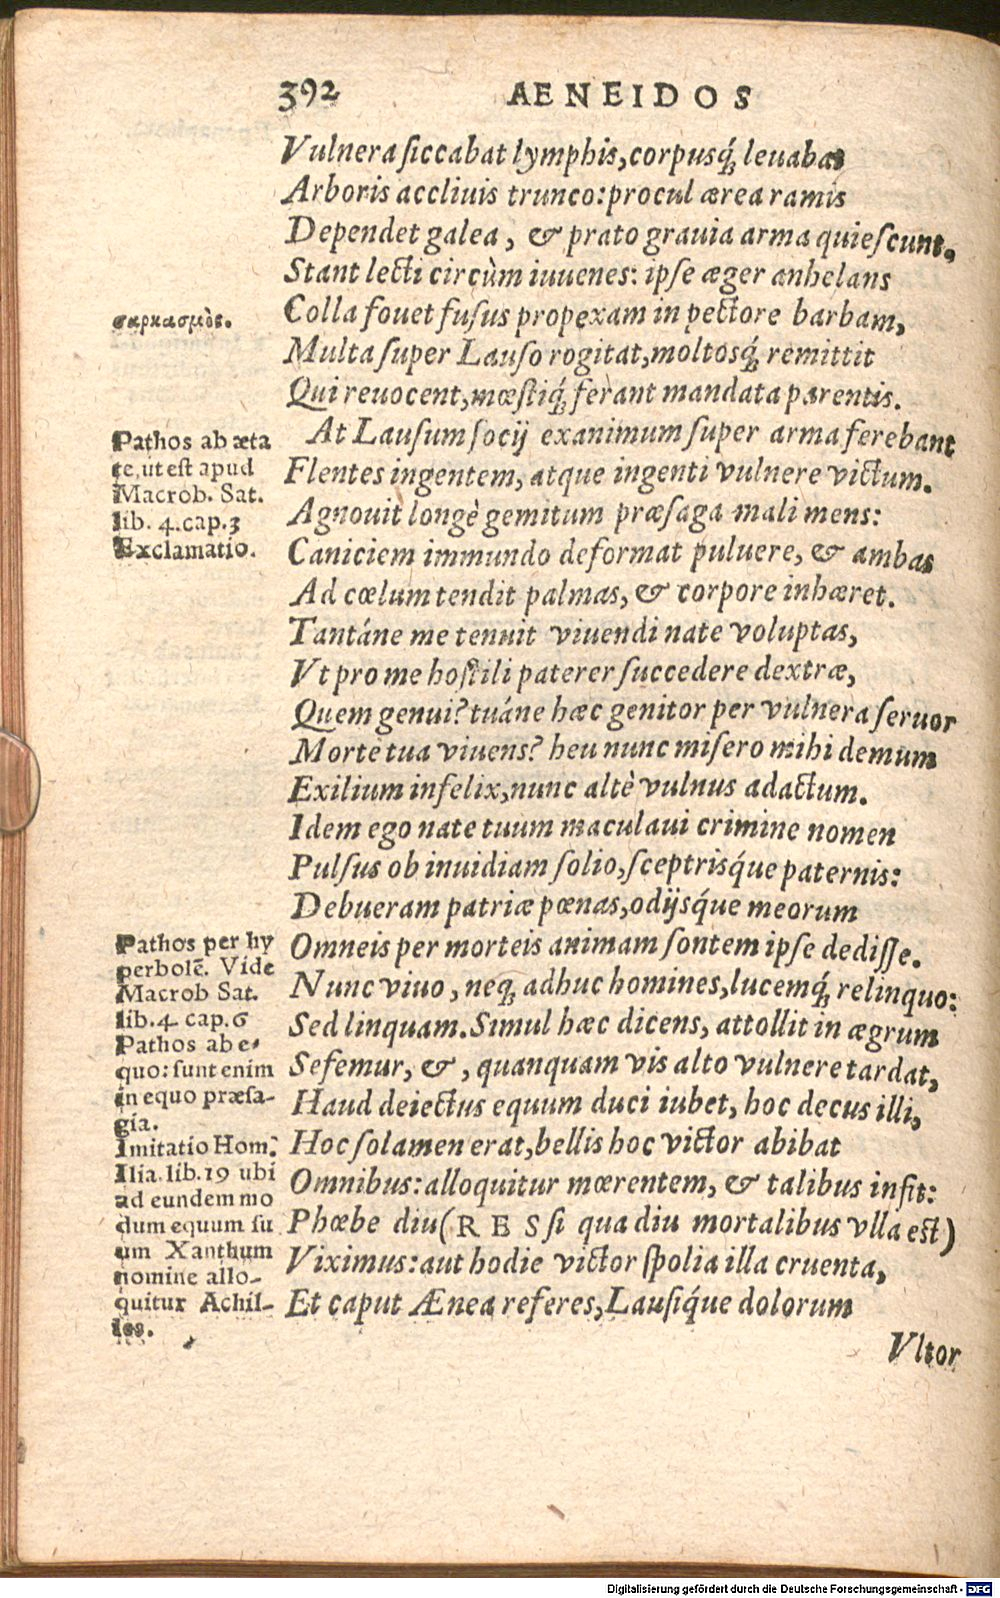 392 AENEIDOS
Vulnera ſiccabat lymphis, corpusq́; leuabat
Arboris accliuis trunco: procul ærea ramis
Dependet galea, & prato grauia arma quieſcunt.
Stant lecti circùm iuuenes: ipſe æger anhelans
σαρκασμὸς.
Colla fouet fuſus propexam in pectore barbam,
Multa ſuper Lauſo rogitat, moltosq́; remittit
Qui reuocent, mœſtiq́; ferant mandata parentis.
Pathos ab æta
te, ut eſt apud
Macrob. Sat.
lib. 4. cap. 3
Exclamatio.
At Lauſum ſocij exanimum ſuper arma ferebant
Flentes ingentem, atque ingenti vulnere victum.
Agnouit longè gemitum præſaga mali mens:
Caniciem immundo deformat puluere, & ambas
Ad cœlum tendit palmas, & corpore inhæret.
Tantáne me tenuit viuendi nate voluptas,
Vt pro me hoſtili paterer ſuccedere dextræ,
Quem genui? tuáne hæc genitor per vulnera ſeruor
Morte tua viuens? heu nunc miſero mihi demum
Exilium infelix, nunc altè vulnus adactum.
Idem ego nate tuum maculaui crimine nomen
Pulſus ob inuidiam ſolio, ſceptrisq́ue paternis:
Debueram patriæ pœnas, odijsq́ue meorum
Pathos per hy
perbolẽ. Vide
Macrob Sat.
lib. 4. cap. 6
Pathos ab e-
quo: ſunt enim
in equo præſa-
gia.
Imitatio Hom.
Ilia. lib. 19 ubi
ad eundem mo
dum equum ſu
um Xanthum
nomine allo-
quitur Achil-
les.
Omneis per morteis animam ſontem ipſe dediſſe.
Nunc viuo, neq; adhuc homines, lucemq́; relinquo:
Sed linquam. Simul hæc dicens, attollit in ægrum
Sefemur, &, quanquam vis alto vulnere tardat,
Haud deiectus equum duci iubet, hoc decus illi,
Hoc ſolamen erat, bellis hoc victor abibat
Omnibus: alloquitur mœrentem, & talibus infit:
Phœbe diu (RES ſi qua diu mortalibus vlla eſt)
Viximus: aut hodie victor ſpolia illa cruenta,
Et caput Æneæ referes, Lauſiq́ue dolorum
Vltor
Digitalisierung gefördert durch die Deutsche Forschungsgemeinschaft - DFG